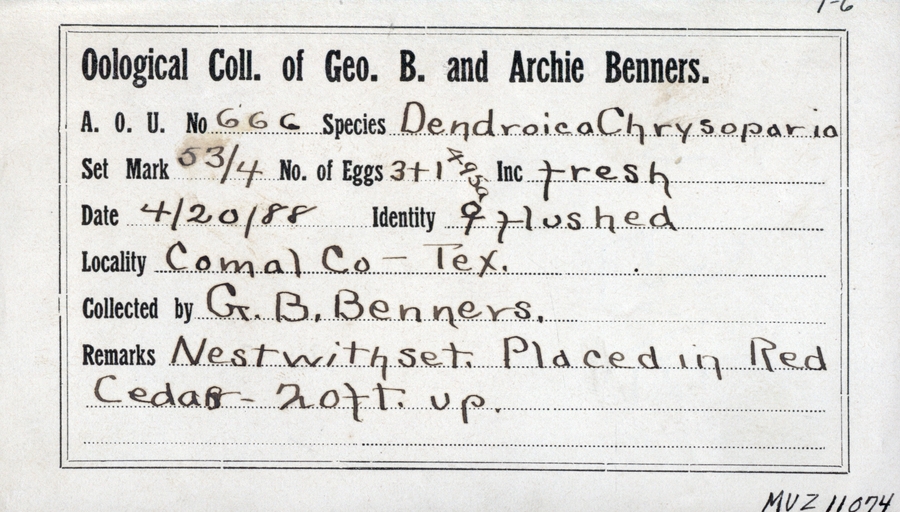 1-6
Oological Coll. of Geo. B. and Archie Benners.
A. O. U. No 666 Species Dendroica Chrysoparia
Set Mark 53/4 No. of Eggs 3+1 Inc fresh
Date 4/20/88 Identity ♀ flushed
Locality Comal Co - Tex.
Collected by G. B. Benners.
Remarks Nest with set. Placed in Red
Cedar - 20 ft. up.
MVZ 11074